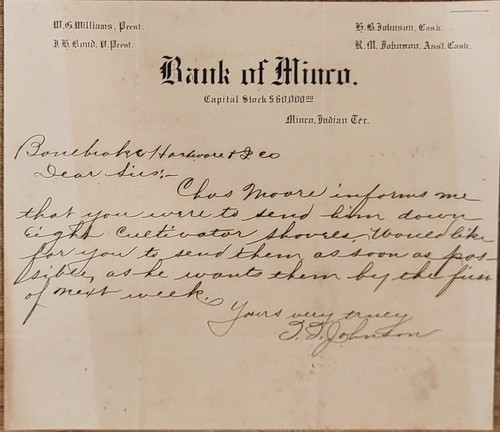 W. G. Williams, Prest. H. B. Johnson, Cash.
J. H. Bond, V. Prest. R. M. Johnson, Asst. Cash.
Bank of Minco.
Capital Stock $60,000.00
Minco, Indian Ter.
Bonebrake Hardware & Co
Dear Sirs:-
Chas Moore informs me
that you were to send him down
eight cultivator shovels. Would like
for you to send them as soon as pos-
sible, as he wants them by the first
of next week.
Yours very truly
Johnson